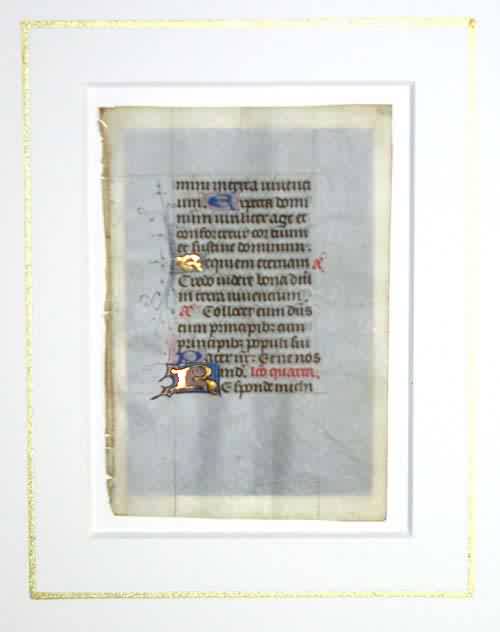 mini in terra uiuenti
um. Expecta domi
num uiriliter age et
confortetur cor tuum
et sustine dominum.
Requiem eternam
Credo uidere bona dni
in terra uiuencium.
Collocet eum dns
cum principibz cum
principibz populi sui
Pater nr. Et ne nos
ind. lco quarta.
Responde michi